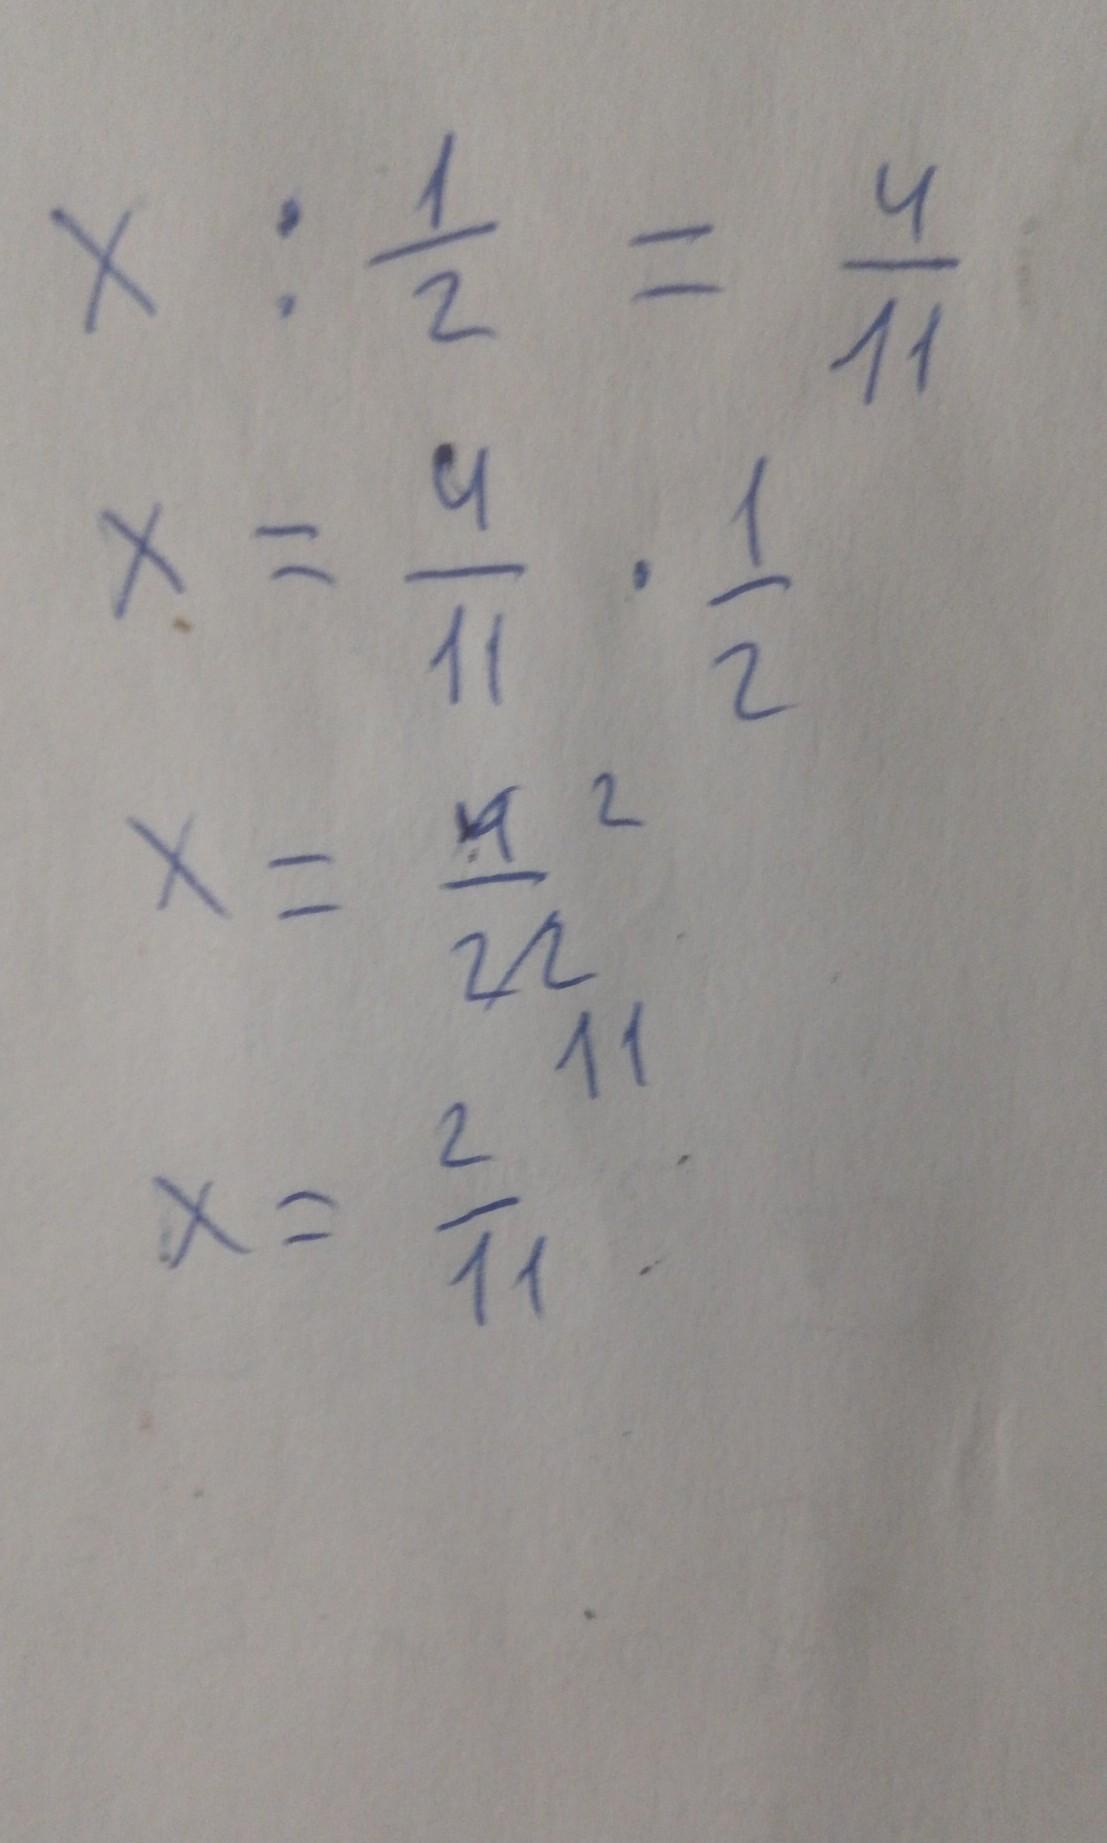 x : 1/2 = 4/11
x = 4/11 · 1/2
x = 4/22 2 11
x = 2/11